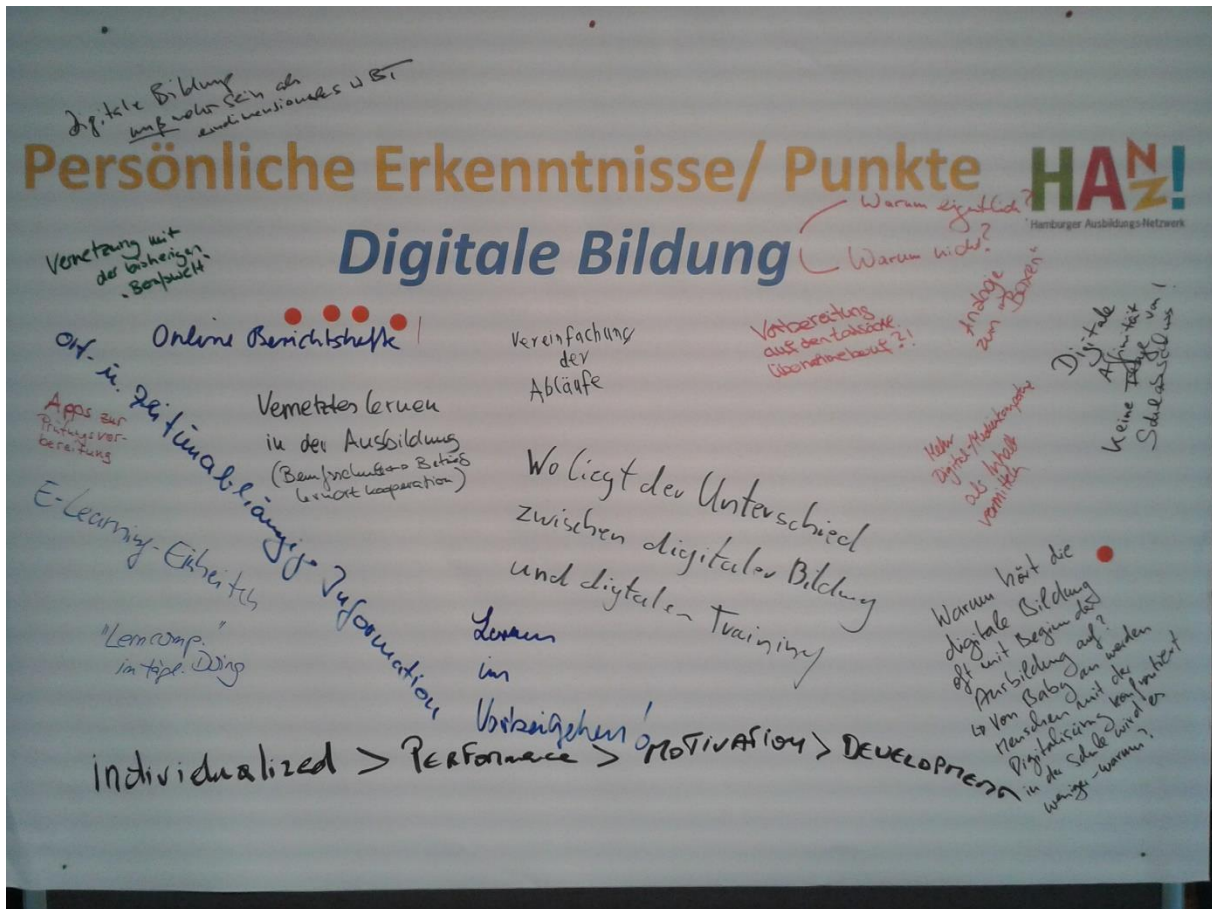 digitale Bildung
muß mehr sein als
eindimensionales WBT
Persönliche Erkenntnisse/ Punkte
Digitale Bildung
HANZ!
Hamburger Ausbildungs-Netzwerk
Warum eigentlich?
Warum nicht?
Vernetzung mit
der bisherigen
"Berufswelt"
Online Berichtshefte!
Vereinfachung
der
Abläufe
Vorbereitung
auf den
Analoge
zum
Boxen
Digitale
Affinität
keine Frage vom
Schulabschluss!
Ort- u. Zeitunabhängige Information
Apps zur
Prüfungsvor-
bereitung
Vernetztes lernen
in der Ausbildung
(Berufsschule Betrieb
Lernort kooperation)
Mehr
Digital-/Medienkompetenz
als Inhalt
vermitteln
Wo liegt der Unterschied
zwischen digitaler Bildung
und digitalen Training
E-Learning-Einheiten
"Lerncomp."
im tägl. Doing
Lernen
im
Vorbeigehen!
Warum hört die
digitale Bildung
oft mit Beginn der
Ausbildung auf?
↳ Von Baby an werden
Menschen mit der
Digitalisierung konfrontiert
in der Schule wird es
weniger - warum?
individualized > Performance > MOTIVATION > DEVELOPMENT